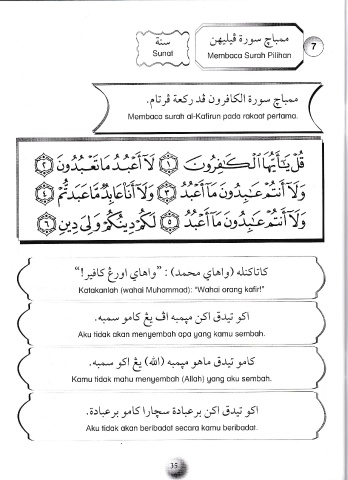 ممباچ سورة ڤيليهن
Membaca Surah Pilihan
سنة
Sunat
7
ممباچ سورة الكافرون ڤد ركعة ڤرتام.
Membaca surah al-Kafirun pada rakaat pertama.
قُلْ يَٰٓأَيُّهَا ٱلْكَٰفِرُونَ ١ لَآ أَعْبُدُ مَا تَعْبُدُونَ ٢
وَلَآ أَنتُمْ عَٰبِدُونَ مَآ أَعْبُدُ ٣ وَلَآ أَنَا۠ عَابِدٌ مَّا عَبَدتُّمْ ٤
وَلَآ أَنتُمْ عَٰبِدُونَ مَآ أَعْبُدُ ٥ لَكُمْ دِينُكُمْ وَلِىَ دِينِ ٦
كاتاكنله (واهاي محمد): "واهاي اورڠ كافير!"
Katakanlah (wahai Muhammad): "Wahai orang kafir!"
اكو تيدق اكن مڽمبه اڤ يڠ كامو سمبه.
Aku tidak akan menyembah apa yang kamu sembah.
كامو تيدق ماهو مڽمبه (الله) يڠ اكو سمبه.
Kamu tidak mahu menyembah (Allah) yang aku sembah.
اكو تيدق اكن برعبادة سچارا كامو برعبادة.
Aku tidak akan beribadat secara kamu beribadat.
35